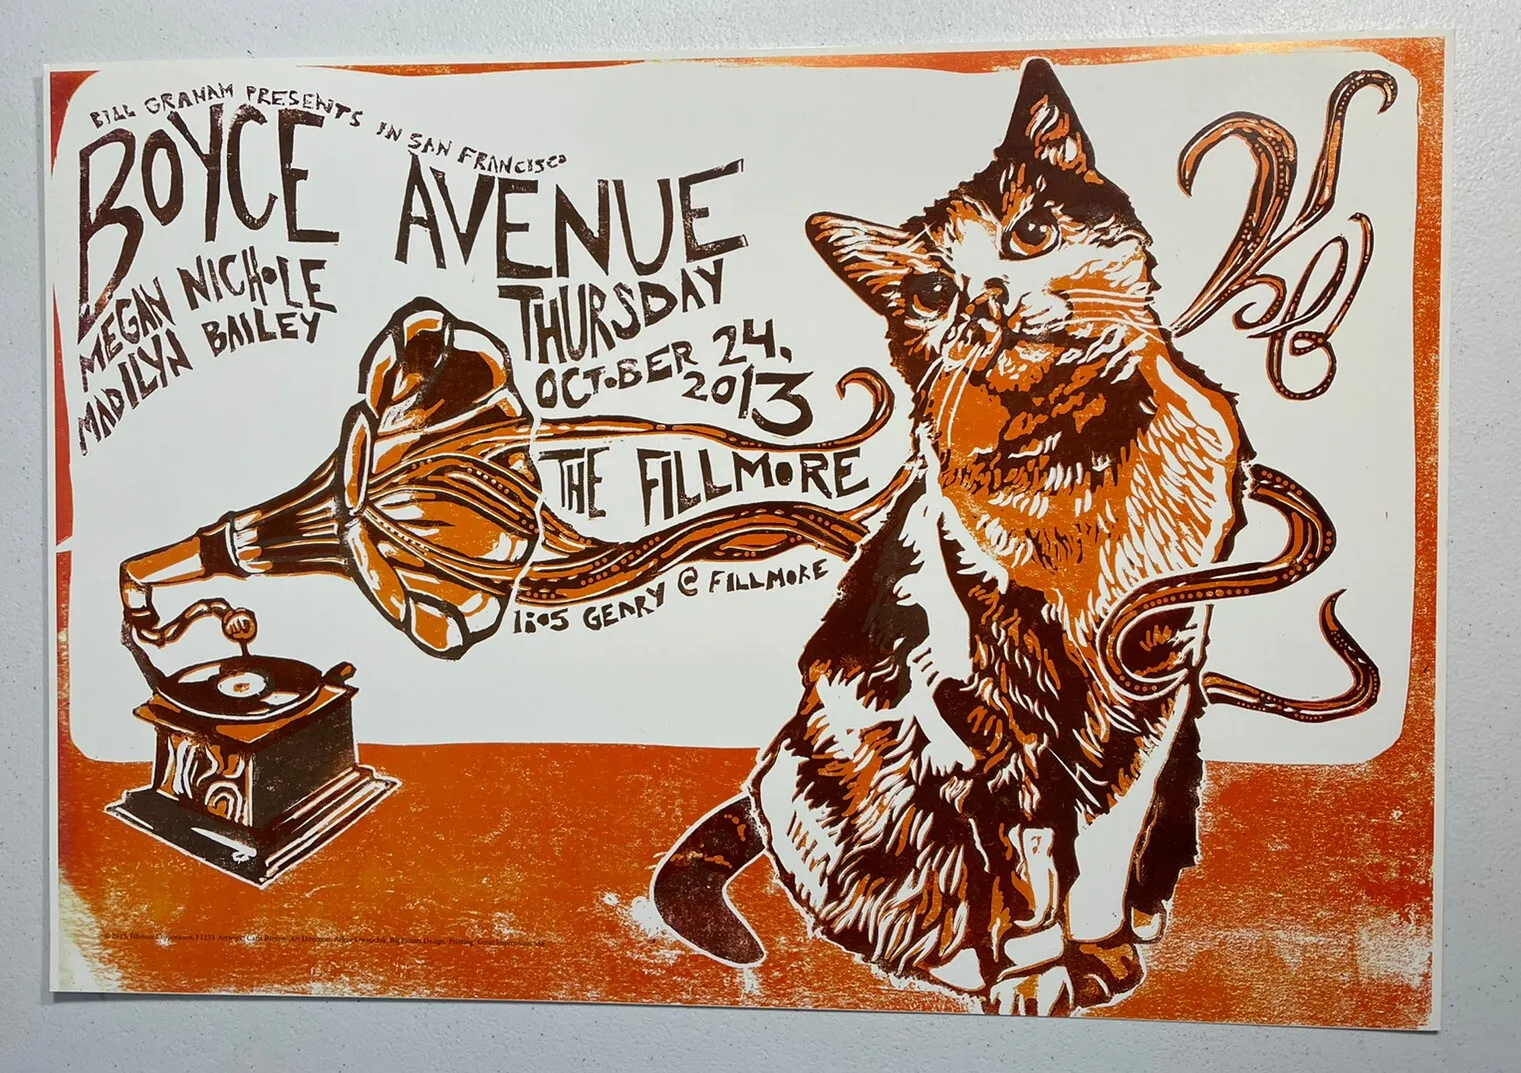 BILL GRAHAM PRESENTS IN SAN FRANCISCO
BOYCE AVENUE
MEGAN NICHOLE
MADILYN BAILEY
THURSDAY
OCTOBER 24,
2013
THE FILLMORE
1805 GEARY @ FILLMORE